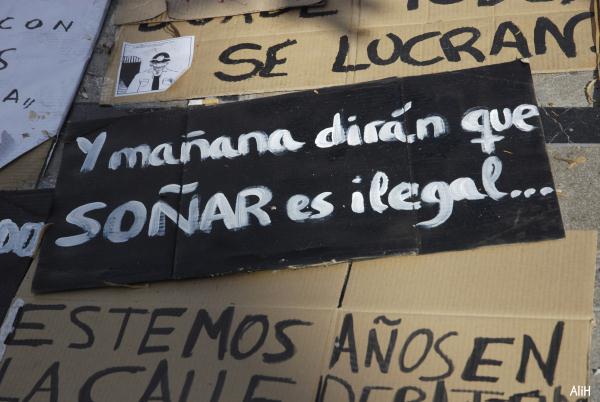 CON
S
A"
SE LUCRAN
Y mañana dirán que
SOÑAR es ilegal...
ESTEMOS AÑOS EN
LA CALLE
AliH